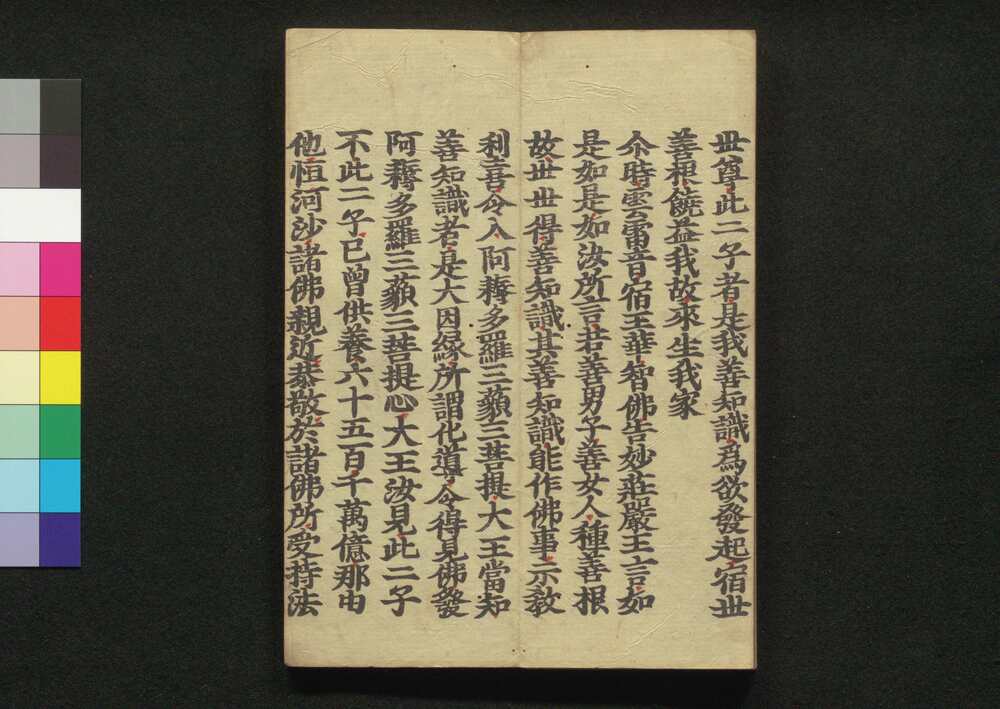 世尊此二子者是我善知識為欲發起宿世
善根饒益我故來生我家
尒時雲雷音宿王華智佛告妙莊嚴王言如
是如是如汝所言若善男子善女人種善根
故世世得善知識其善知識能作佛事示教
利喜令入阿耨多羅三藐三菩提大王當知
善知識者是大因縁所謂化導令得見佛發
阿耨多羅三藐三菩提心大王汝見此二子
不此二子已曾供養六十五百千萬億那由
他恒河沙諸佛親近恭敬於諸佛所受持法